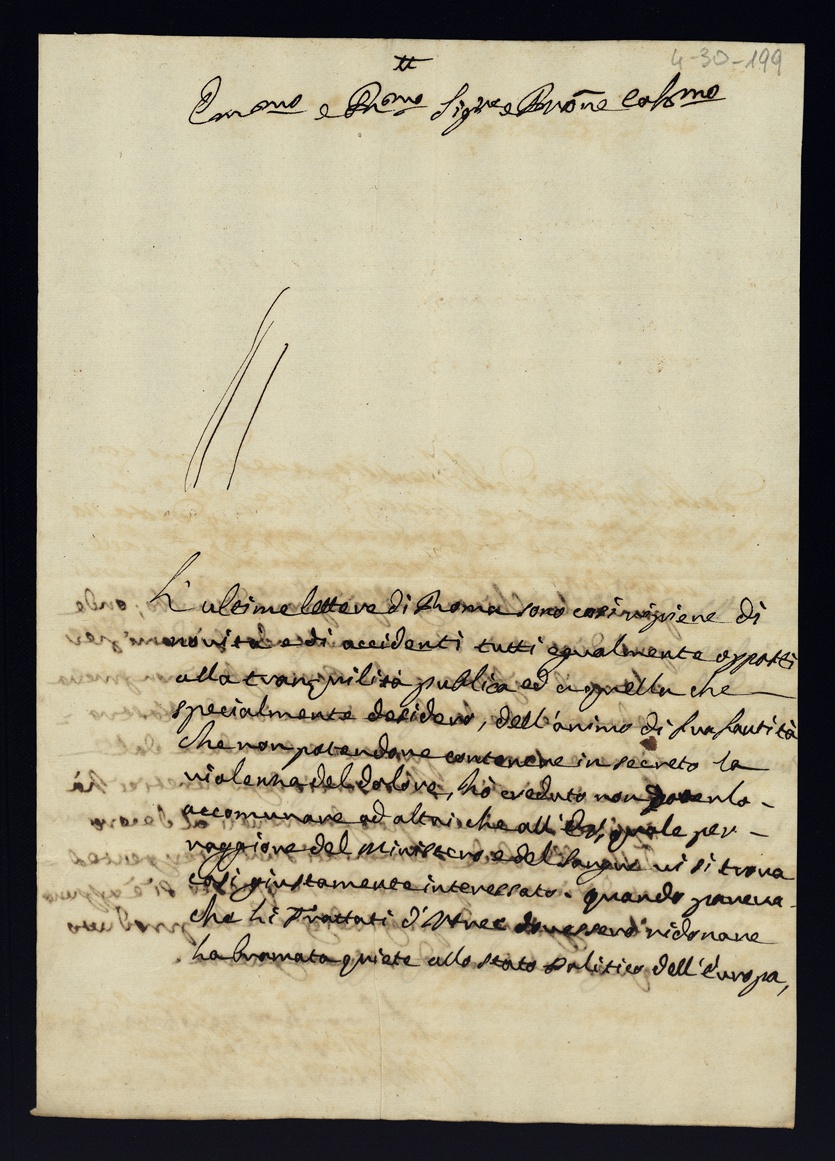 4-30-199
tt
Emmo e Rmo Sigre e Prōne Colmo
L'ultime lettere di Roma sono così ripiene di
novità e di accidenti tutti egualmente opposti
alla tranquilità publica ed a quella che
specialmente desidero, dell'animo di sua santità
che non potendone contenere in secreto la
violenza del dolore, hò creduto non doverlo
accomunare ad altri che all' quale per
raggione del Ministero e del sangue vi si trova
così giustamente interessato. quando pareva
che li Trattati d'Utrec dovessero ridonare
la bramata quiete allo stato Politico dell'Europa,